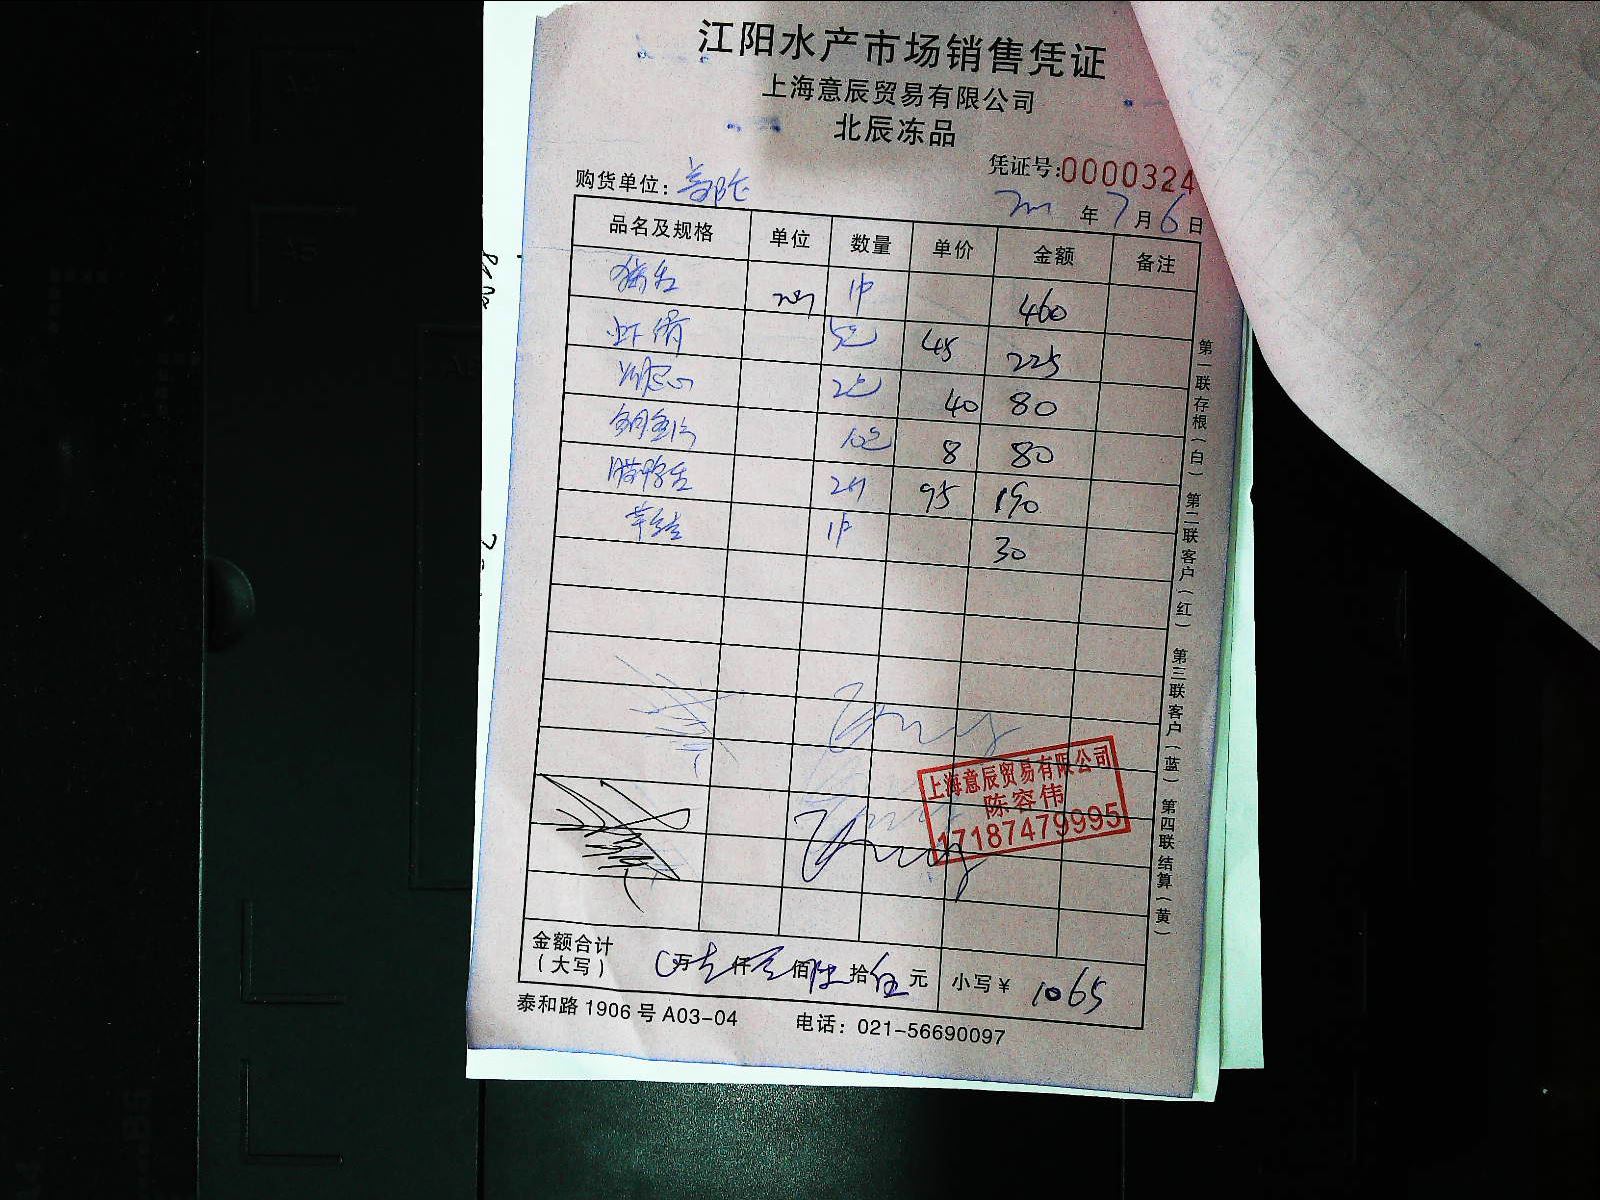 江阳水产市场销售凭证
上海意辰贸易有限公司
北辰冻品
凭证号:0000324
购货单位:
年 7 月 6 日
品名及规格 单位 数量 单价 金额 备注
1件 460
虾滑 5包 45 225
2包 40 80
10包 8 80
2件 95 190
1件 30
第一联存根（白） 第二联客户（红） 第三联客户（蓝） 第四联结算（黄）
上海意辰贸易有限公司
陈容伟
17187479995
金额合计
（大写） 万 仟 佰 陆 拾 伍 元 小写¥ 1065
泰和路 1906 号 A03-04 电话：021-56690097